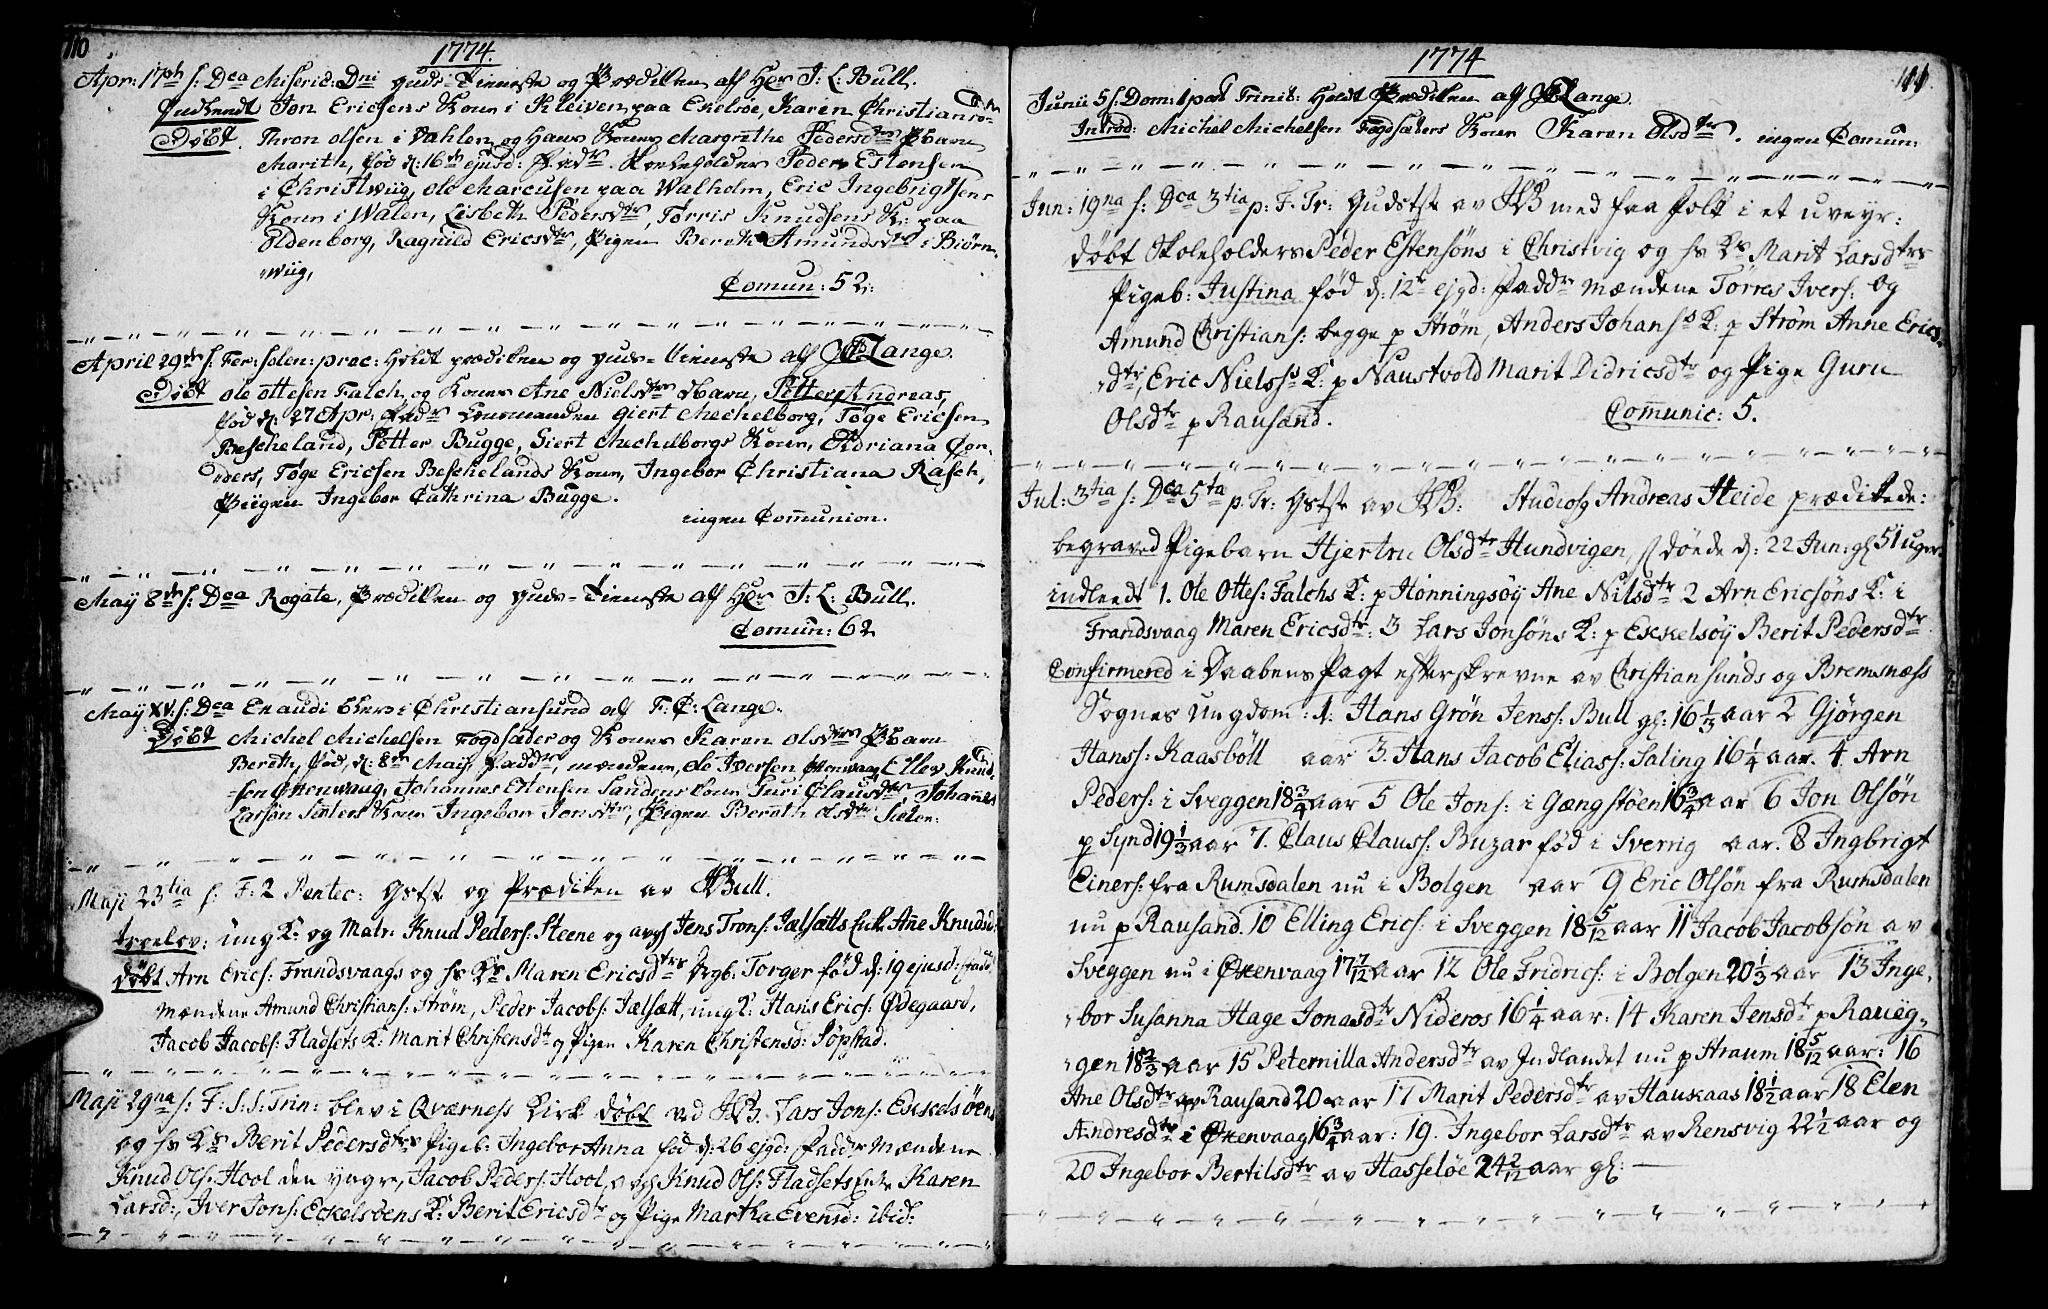 110
1774.
Apr: 17de s: Dca Miseric: Dni Guds-Tieneste og Prædiken af Hr. J: L: Bull.
Indleedt Jon Ericsens Kone i Kleiven paa Ekelsøe, Karen Christians-
Døbt. Thron Olsen i Dahlen og Hans Kones Margrethe Pedersdtrs Barn
Marith, fød d: 16de ejusd: Fadr. Skoleholder Peder Estensen
i Christwiig, Ole Marcusen paa Walholm, Eric Ingebrigtsens
Kone i Walen, Lisbeth Pedersdtr, Torris Knudsens K: paa
Oldenborg, Ragnild Ericsdtr, Pigen Bereth Amundsdtr i Biørn-
wiig,
Comun: 52:
April 29de s: Fer: solen: prec: Holdt prædiken og Guds-Tieneste af FC Lange.
Døbt Ole Ottesen Falch og Kones Ane Nielsdtrs Barn, Petter Andreas,
fød d: 27 Apr: Fadr Lensmanden Giert Mechelborg, Tøge Ericsen
Bescheland, Petter Bugge, Giert Mechelborgs Kone, Adriana Con-
ders, Tøge Ericsen Beschelands Kone, Ingebor Christiana Rasch,
Piigen Ingebor Cathrina Bugge.
ingen Comunion.
May 8de s: Dca Rogate, Prædiken og Guds-Tieneste af Hr. J: L: Bull.
Comun: 62
May XV. s: Dca Exaudi blev i Christiansund af F: C: Lange.
Døbt Michel Michelsen Fogdsæder og Kones Karen Olsdtrs Barn
Bereth, fød, d: 8de May, Fadr, mændene, Ole Iversen Ottenwaag, Ellev Knud-
sen Ottenwaag, Johannes Estensen Sandens Kone Guri Clausdtr Johannes
Larsøn Kone Ingebor Jonsdtr, Pigen Bereth Olsdtr
Maji 23tia s: F: 2 Pentec: Gstst og Prædiken av JLBull.
troelov: ung K. og Matr: Knud Peders: Steene og avgs Jens Trons: Jælsætts Enk: Ane Knudsd:
døbt Arn Erics: Frandsvaags og hs Ks Maren Ericsdtrs Drgb: Torger fød d: 19 ejusd: Fadd:
Mændene Amund Christians: Strøm, Peder Jacobs: Jælsætt, ung K: Hans Erics: Ødegaard,
Jacob Jacobs: Fladsets K: Marit Christensdtr og Pigen Karen Christensd: Sopstad.
Maji 29na s: F: S.S: Trin: blev i Qværness Kirk døbt ved JLB. Lars Jons: Ekkelsøens
og hs Ks Berit Pedersdtrs Pigeb: Ingebor Anna fød d: 26 ejgd: Faddr Mændene
Knud Ols: Hool den yngre, Jacob Peders: Hool, avgs Knud Ols: Fladsets Enk: Karen
Larsd:, Iver Jons: Eckelsöens K: Berit Ericsdtr og Pige Martha Evensd: ibid:
1774
111
Junii 5 s: Dom: 1 post Trinit: Holdt Prædiken af FCLange.
Introd: Michel Michelsen Fogdsæters Kone Karen Olsdtr. ingen Comun:
Jun: 19na s: Dca 3tia p: F. Tr: Gudstst av JLB med faa folk i et uveyr:
døbt Skoleholders Peder Estensöns i Christvig og hs Ks Marit Larsdtrs
Pigeb: Justina fød d: 12te ejgd: Faddr Mændene Törres Ivers: og
Amund Christians: begge p Strøm, Anders Johanss K: p Strøm Anne Erics-
dtr, Eric Nielss K: p Naustvold Marit Didricsdtr og Pige Guru
Olsdtr p Rausand. Comunic: 5.
Jul: 3tia s: Dca 5ta p. Tr: Gstst av JLB: Studiosg Andreas Heide prædikede:
begraved Pigebarn Hjertru Olsdtr Hundvigen döede d: 22 Jun: gl 51 uger
indleedt 1. Ole Ottes: Falchs K: p Honningsøy Ane Nilsdtr 2 Arn Ericsöns K: i
Frandsvaag Maren Ericsdtr: 3 Lars Jonsöns K: p Ekkelsöy Berit Pedersdtr
Confirmered i Daabens Pagt efterskrevne av Christiansunds og Bremsnæss
Sognes ungdom: 1: Hans Grön Jenss: Bull gl: 16 1/3 aar 2 Gjörgen
Hanss: Kaasböll aar 3. Hans Jacob Eliass: Saling 16 1/4 aar. 4 Arn
Peders: i Sveggen 18 3/4 aar 5 Ole Jons: i Gængstöen 16 3/4 aar 6 Jon Olsön
p Synd 19 1/3 aar 7. Claus Clauss: Buzar fød i Sverrig aar. 8 Ingbrigt
Einers: fra Rumsdalen nu i Bolgen aar 9 Eric Olsön fra Rumsdalen
nu p Rausand. 10 Elling Erics: i Sveggen 18 5/12 aar 11 Jacob Jacobsön av
Sveggen nu i Øxenvaag 17 7/12 aar 12 Ole Fridrics: i Bolgen 20 1/3 aar 13 Inge-
bor Susanna Hage Jonasdtr Nideros 16 1/4 aar: 14 Karen Jensdtr p Raueg-
gen 18 2/3 aar 15 Peternilla Andersdtr av Indlandet nu p Straum 18 5/12 aar: 16
Ane Olsdtr av Rausand 20 aar 17 Marit Pedersdtr av Haukaas 18 1/2 aar 18 Elen
Andresdtr i Øxenvaag 16 3/4 aar: 19. Ingebor Larsdtr av Rensvig 22 1/2 aar og
20 Ingebor Bertilsdtr av Hasseløe 24 2/12 aar gl: